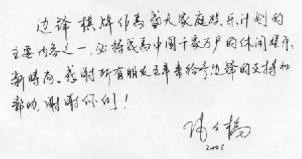 边锋棋牌作为盛大家庭娱乐计划的
主要内容之一，必将成为中国千家万户的休闲娱乐
新时尚。感谢所有朋友五年来给予边锋的支持和
帮助，谢谢你们！
陈天桥
2005